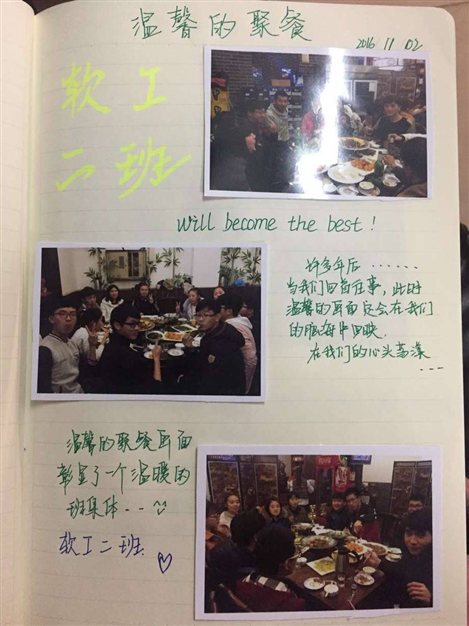 温馨的聚餐
2016 11 02
软工
二班
Will become the best!
许多年后......
当我们回首往事,此时
温馨的画面定会在我们
的脑海中回映
在我们的心头荡漾
...
温馨的聚餐画面
彰显了一个温暖的
班集体..
软工二班